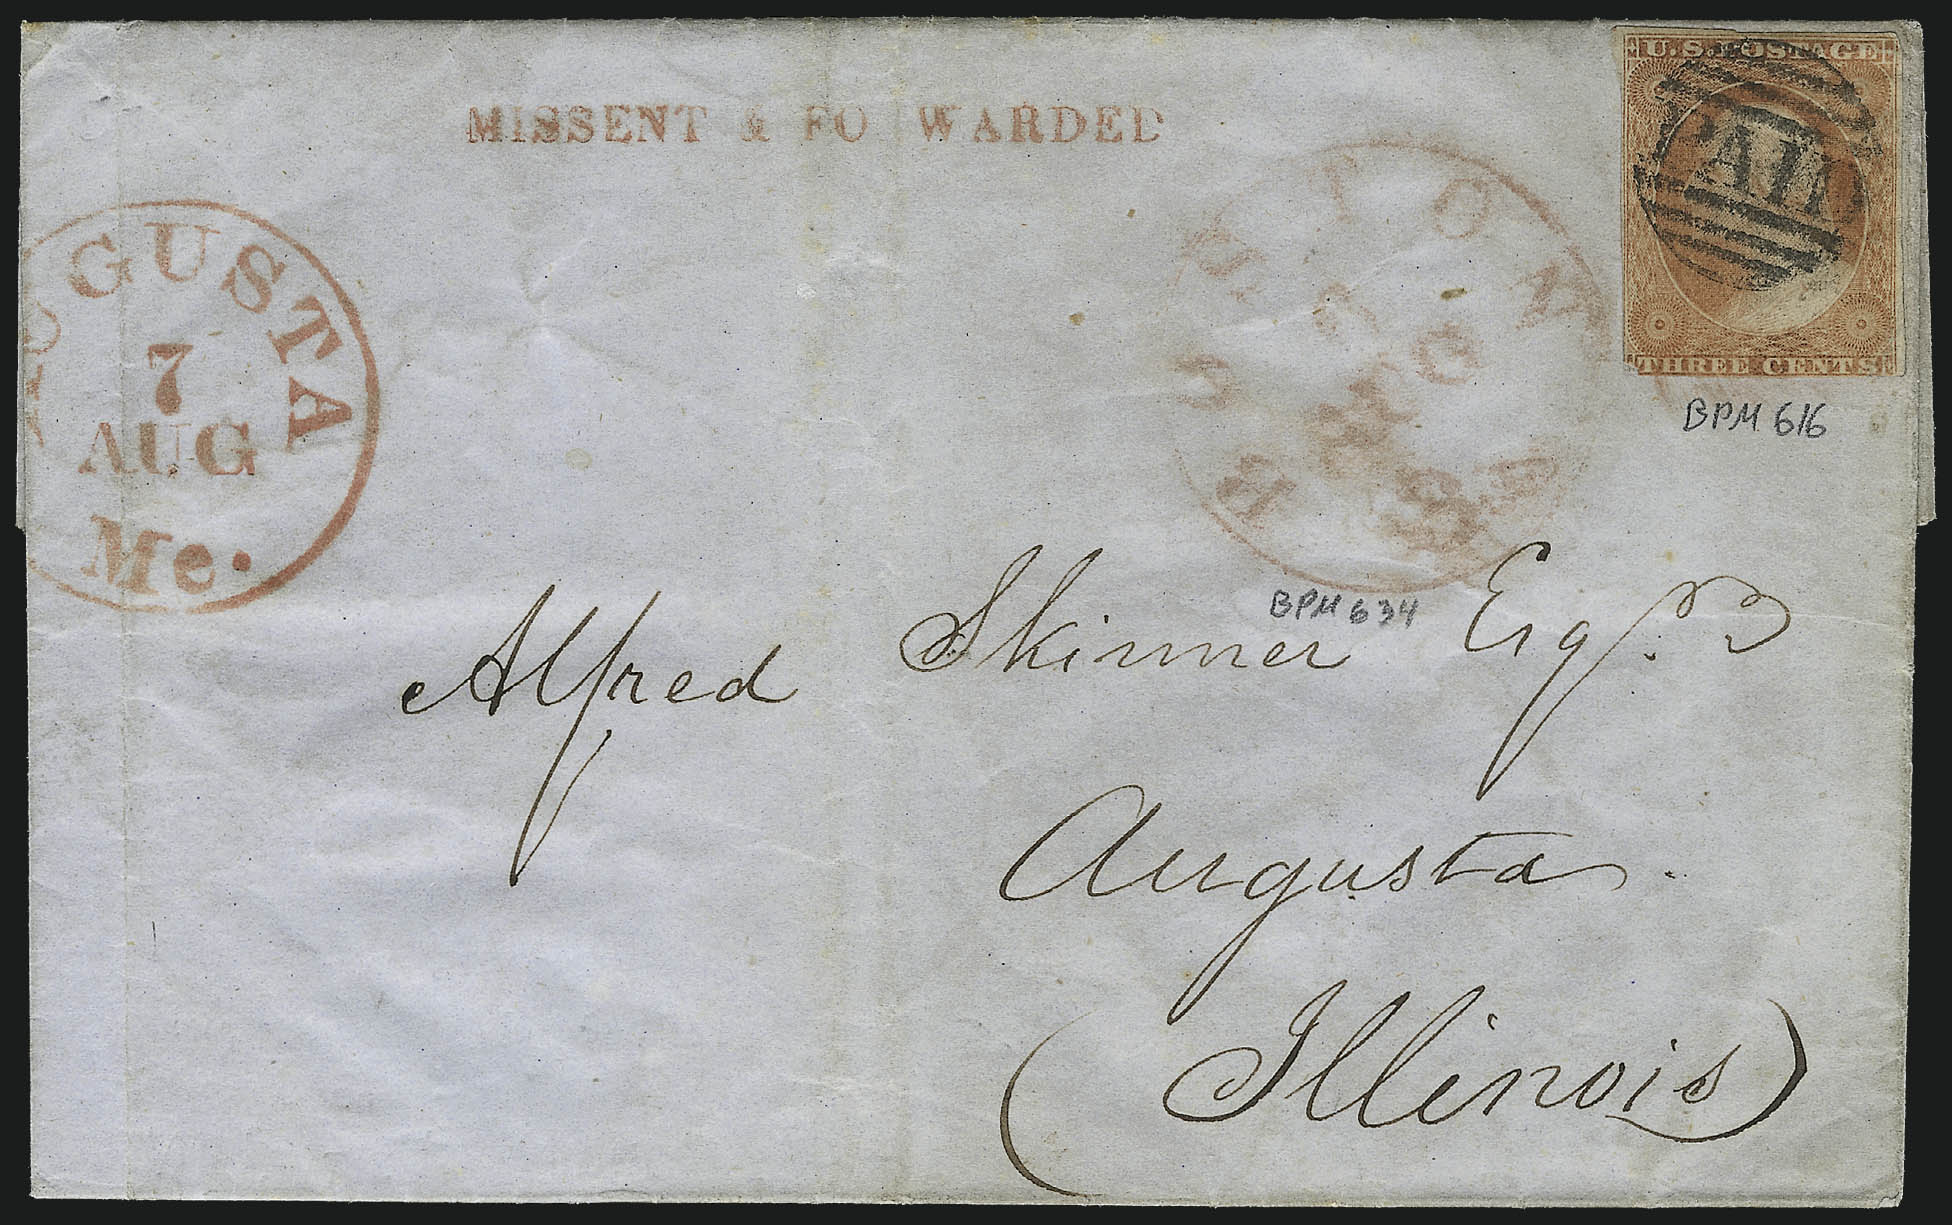 U.S. POSTAGE
PAID
THREE CENTS
MISSENT & FO WARDED
AUGUSTA
7
AUG
Me.
BPM 616
BPM 634
Alfred Skinner Esq.
Augusta.
(Illinois)